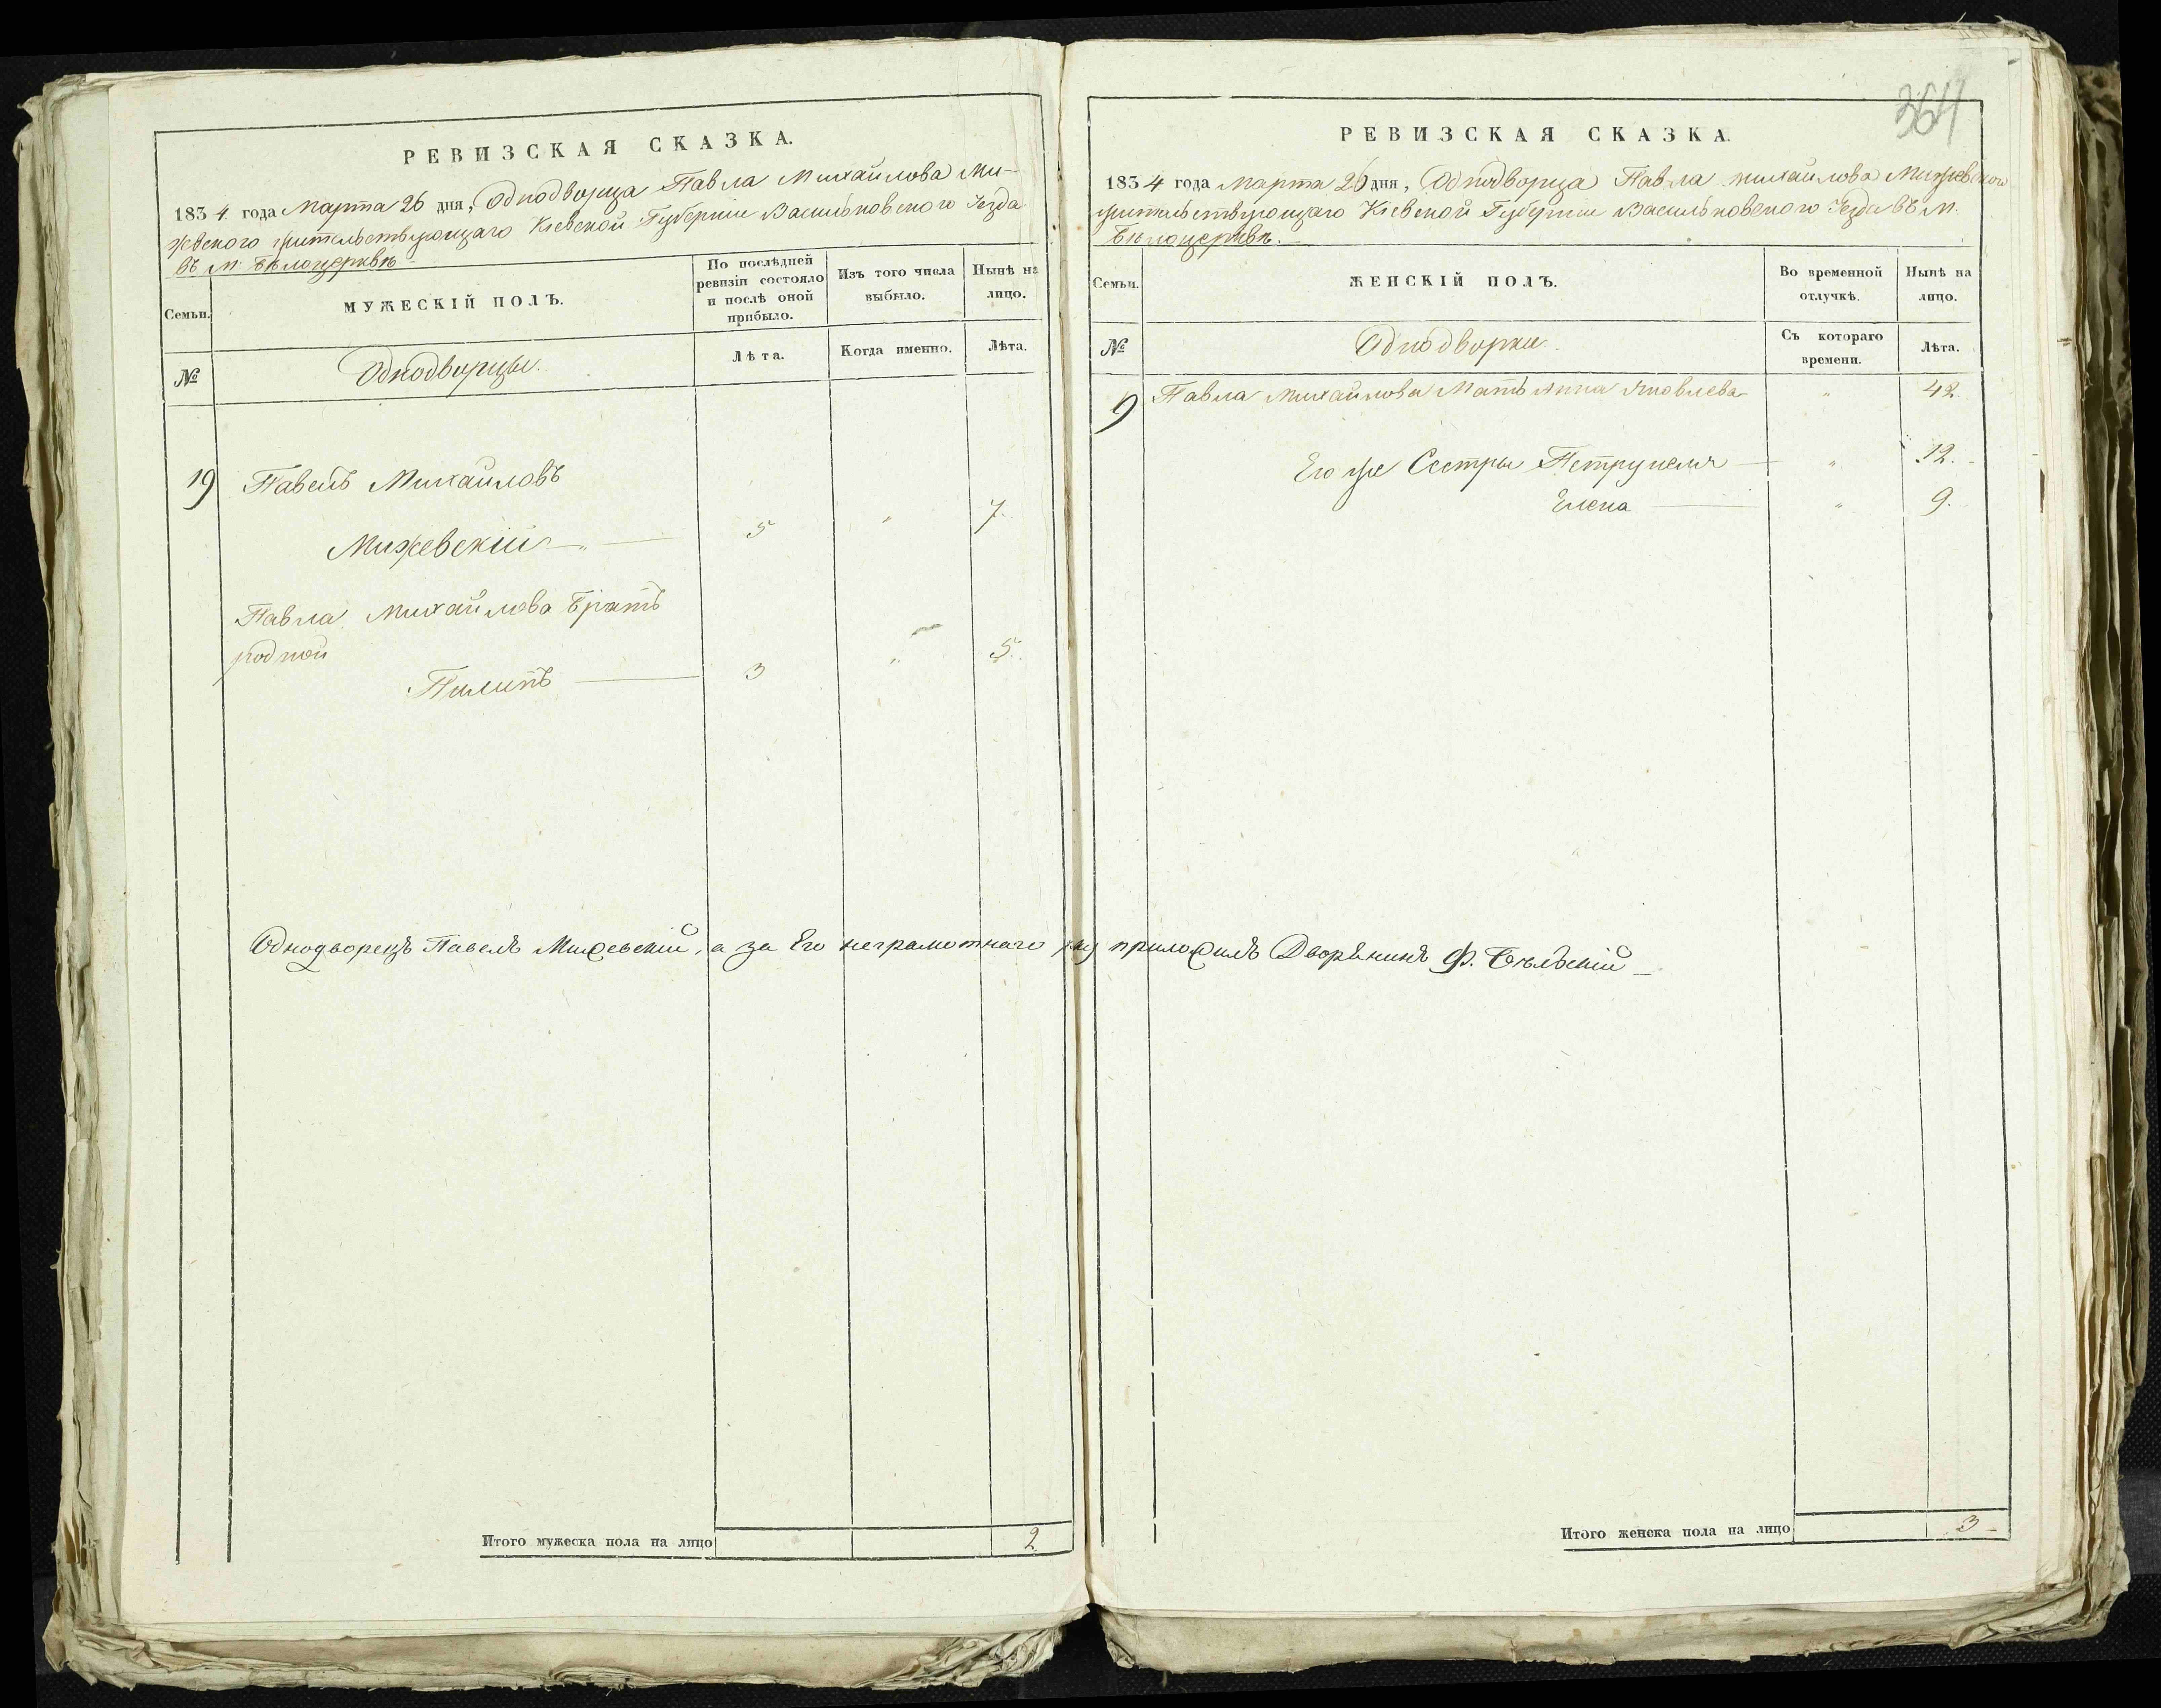 364
РЕВИЗСКАЯ СКАЗКА.
1834 года Марта 26 дня, Однодворца Павла Михайлова Ми-
жевского жительствующаго Кіевской Губерніи Васильковского Уезда
въ М. Белоцерквѣ
Семьи.
МУЖЕСКІЙ ПОЛЪ.
По послѣдней
ревизіи состояло
и послѣ оной
прибыло.
Изъ того числа
выбыло.
Нынѣ на
лицо.
№
Однодворцы.
Лѣта.
Когда именно.
Лѣта.
19 Павелъ Михайловъ
Мижевскій 5 " 7.
Павла Михайлова Братъ
родной
Пилипъ 3 " 5.
Однодворецъ Павелъ Мижевскій, а за Его неграмотнаго руку приложилъ Дворянинъ Ф. Бѣльскій
Итого мужеска пола на лицо 2
РЕВИЗСКАЯ СКАЗКА.
1834 года Марта 26 дня, Однодворца Павла Михайлова Мижевского
жительствующаго Кіевской Губерніи Васильковского Уезда въ М.
Белоцерквѣ.
Семьи.
ЖЕНСКІЙ ПОЛЪ.
Во временной
отлучкѣ.
Нынѣ на
лицо.
№
Однодворки.
Съ котораго
времени.
Лѣта.
9 Павла Михайлова Мать Анна Яковлева " 42.
Его же Сестры Петрунеля " 12.
Елена " 9.
Итого женска пола на лицо 3